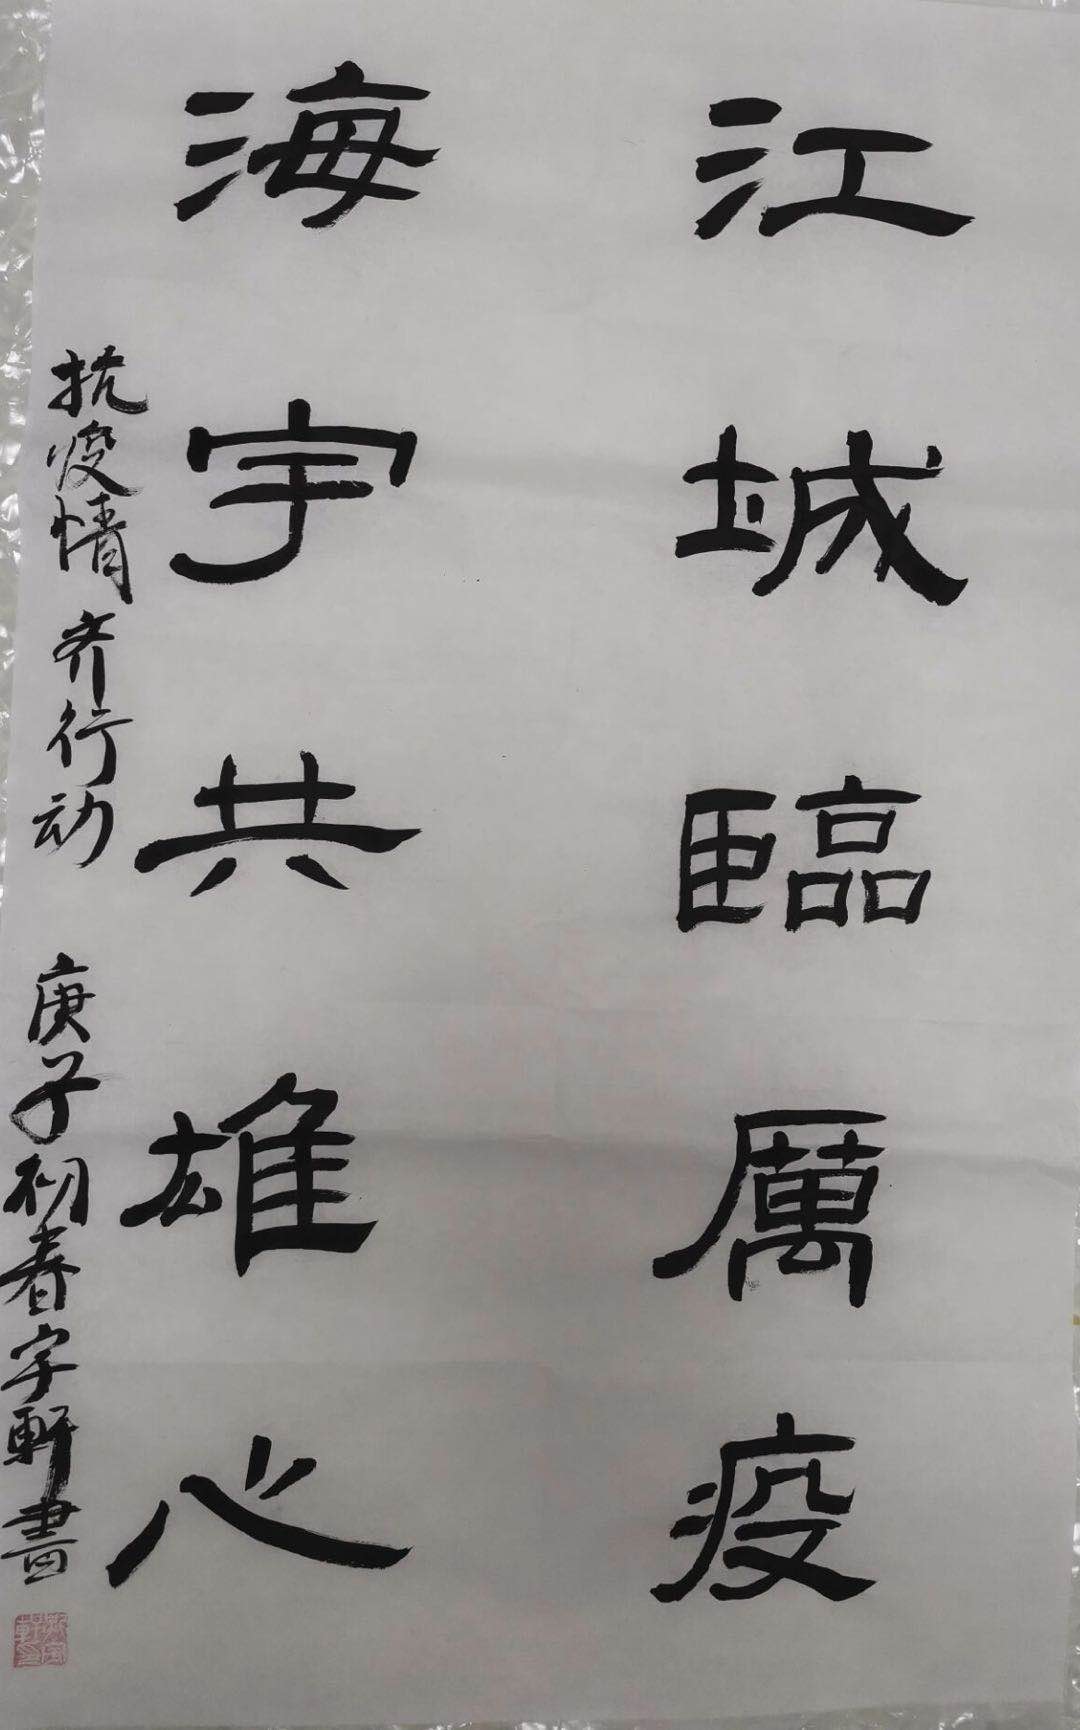 江城臨厲疫
海宇共雄心
抗疫情齐行动 庚子初春字軒書